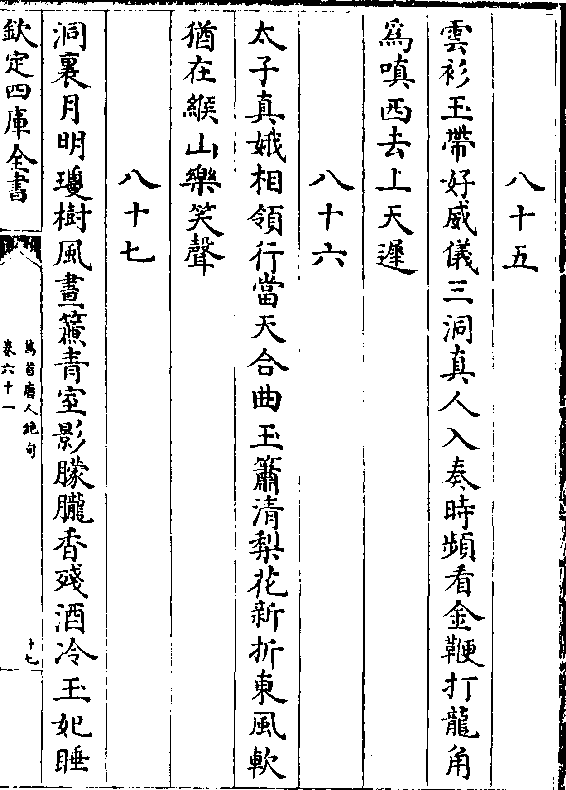 八十五
雲衫玉帶好威儀三洞真人入奏時頻看金鞭打龍角
爲嗔西去上天遲
八十六
太子真娥相領行當天合曲玉簫清梨花新折東風軟
猶在緱山樂笑聲
八十七
洞裏月明瓊樹風晝簾青室影朦朧香殘酒冷玉妃睡
欽定四庫全書
萬首唐人絶句
卷六十一
十七